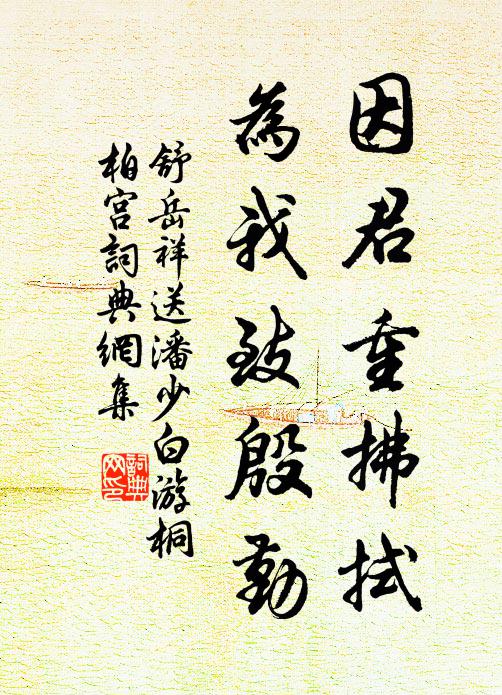 因君重拂拭
為我致殷勤
舒岳祥送潘少白游桐
柏宮詞典網集
詞典
网印